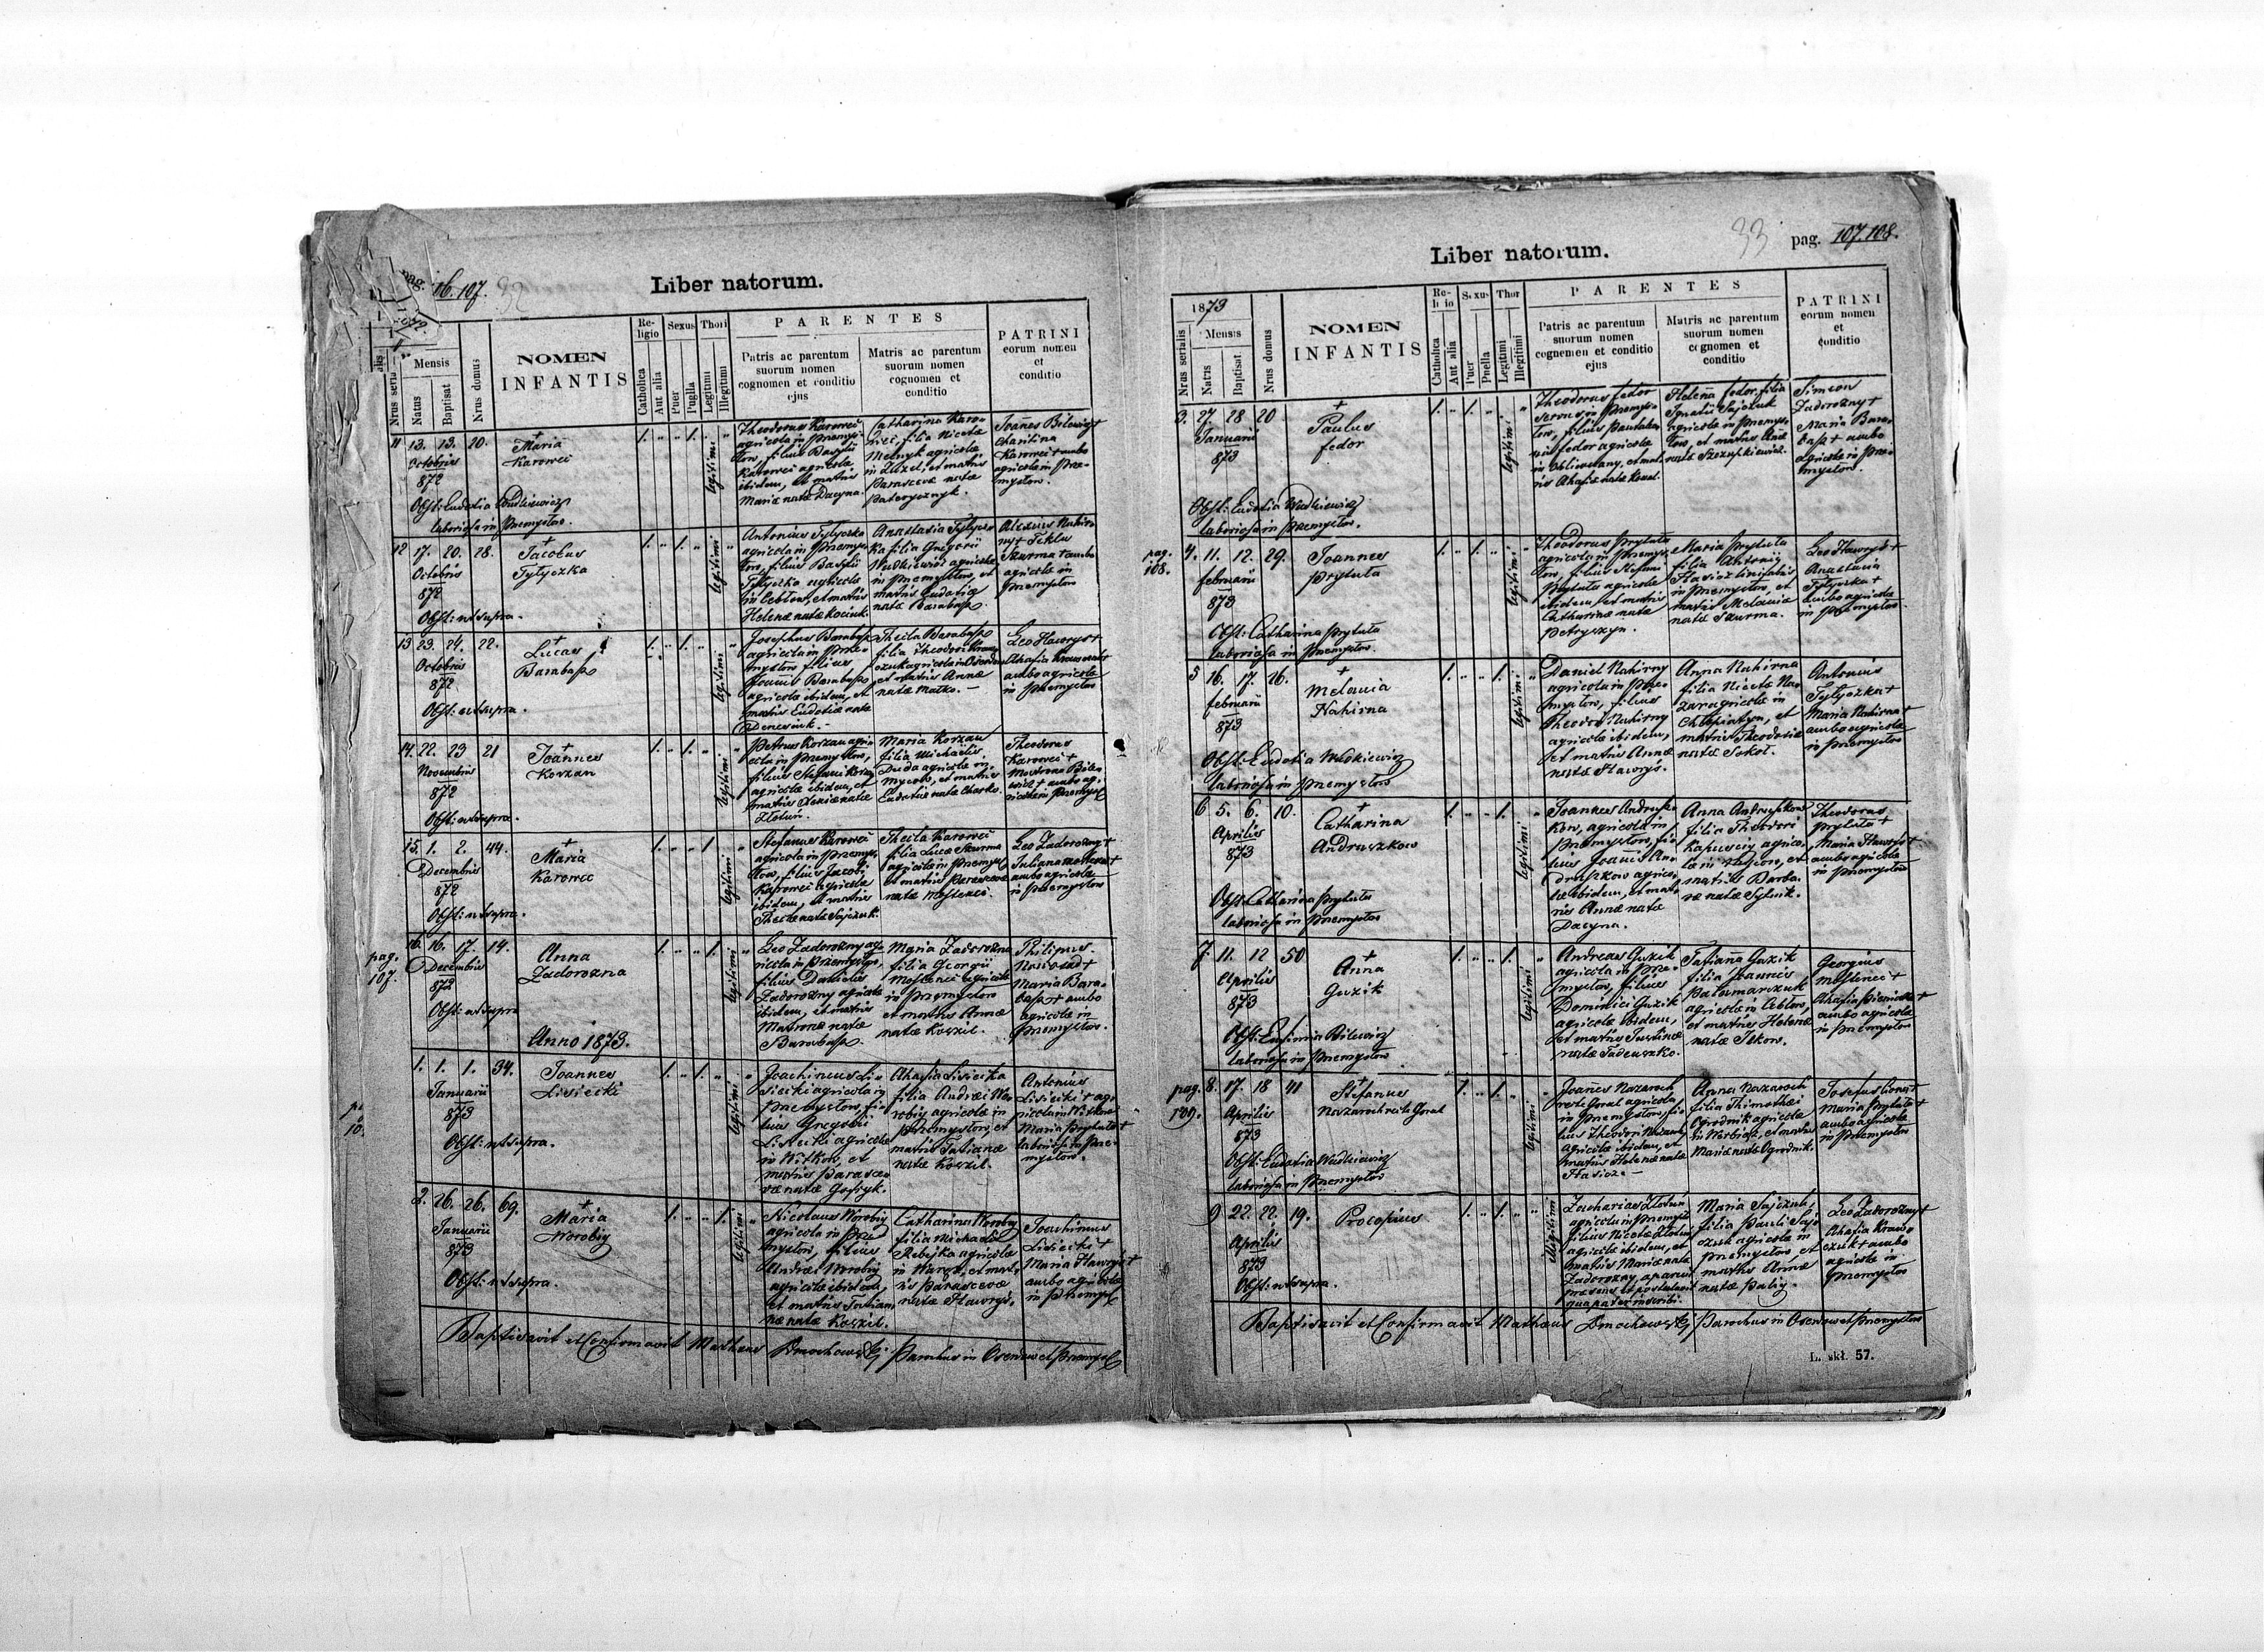 pag. 107.
32
Liber natorum.
Mensis
Natus
Baptisat
Nrus domus
NOMEN
INFANTIS
Religio
Catholica
Aut alia
Sexus
Puer
Puella
Thori
Legitimi
Illegitimi
PARENTES
Patris ac parentum
suorum nomen
cognomen et conditio
ejus
Matris ac parentum
suorum nomen
cognomen et
conditio
PATRINI
eorum nomen
et
conditio
11 13. 13. 20.
Octobris
872
Maria
Karowci
legitimi
Theodorus Karowci
agricola in Przemys-
łow, filius Basylii
Karowci agricolæ
ibidem, et matris
Mariæ natæ Dacyna.
Catharina Karo-
wci, filia Nicetæ
Melnyk agricolæ
in Zuzel, et matris
Parascevæ natæ
Joannes Bilewicz +
Charitina
Karowci + ambo
agricolæ in Prze-
mysłow.
Obst: Eudotia Wudkiewicz
laboriosa in Przemysłow.
12 17. 20. 28.
Octobris
872
Jacobus
Tytyczka
legitimi
Antonius Tytyczka
agricola in Przemys-
łow, filius Basylii
Tytyczka agricolæ
in Cebłow, et matris
Helenæ natæ Kociuk.
Anastasia Tytycz-
ka filia Gregorii
Wudkiewicz agricolæ
in Przemysłow, et
matris Eudotiæ
natæ Barabasz.
Alexius Nahir-
ny + Tekla
Szurma + ambo
agricolæ in
Przemysłow
Obst: ut supra.
13 23. 24. 22.
Octobris
872
Lucas
Barabasz
legitimi
Josephus Barabasz
agricola in Prze-
mysłow filius
Joannis Barabasz
agricolæ ibidem, et
matris Eudotiæ natæ
Denesiuk.
Thecla Barabasz
filia Theodori
et matris Annæ
natæ Matko.
Leo Hawrys +
ambo agricolæ
in Przemysłow
Obst: ut supra.
14. 22. 23 21
Novembris
872
Joannes
Korzan
legitimi
Petrus Korzan agri-
cola in Przemysłow,
filius Stefani Korzan
agricolæ ibidem, et
matris Xeniæ natæ
Złotuń.
Maria Korzan
filia Michaelis
Duda agricolæ in
Mycow, et matris
Eudotiæ natæ Charko.
Theodorus
Karowci +
Matrona Bile-
wicz + ambo ag-
ricolæ in Przemysł
Obst: ut supra.
15. 1. 2. 44.
Decembris
872
Maria
Karowci
legitimi
Stefanus Karowci
agricola in Przemys-
łow, filius Jacobi
Karowci agricolæ
ibidem, et matris
Theclæ natæ Sajczuk.
Thecla Karowci
filia Lucæ Szurma
agricolæ in Przemysł
et matris Parascevæ
natæ Mostenci.
Leo Zadorozny +
ambo agricolæ
in Przemysłow
Obst: ut supra.
pag.
107.
16. 16. 17. 14.
Decembris
872
Anna
Zadorozna
legitimi
Leo Zadorozny ag-
ricola in Przemysłow,
filius Danielis
Zadorozny agricolæ
ibidem, et matris
Matronæ natæ
Barabasz.
Maria Zadorozna
filia Georgii
Mostenci agricolæ
in Przemysłow
et matris Annæ
natæ Koszil.
Philippus
Nosiorad +
Maria Bara-
basz + ambo
agricolæ in
Przemysłow.
Obst: ut supra
Anno 1873.
1. 1. 1. 34.
Januarii
873
Joannes
Lisiecki
legitimi
Joachimus Li-
siecki agricola in
Przemysłow, fi-
lius Gregorii
Lisiecki agricolæ
in Witkow, et
matris Parasce-
væ natæ
Ahafia Lisiecka
filia Andreæ Wo-
robiy agricolæ in
Przemysłow, et
matris Tatianæ
natæ Koszil.
Antonius
Lisiecki + ag-
ricola in Witkow
Maria Prytuła +
laboriosa in Prze-
mysłow.
Obst: ut supra.
2. 26. 26. 69.
Januarii
873
Maria
Worobiy
legitimi
Nicolaus Worobiy
agricola in Prze-
mysłow, filius
Andreæ Worobiy
agricolæ ibidem,
et matris Tatian-
næ natæ Koszil.
Catharina Worobiy
filia Michaelis
Rebejka agricolæ
in Waręż, et mat-
ris Parascevæ
natæ Hawryś.
Joachimus
Lisiecki +
Maria Hawryś +
ambo agricolæ
in Przemysł
Obst: ut supra.
Baptisavit et Confirmavit Mathæus Dmochowski Parochus in Oserdow et Przemysł
33
pag. 107. 108.
Liber natorum.
1873
Nrus serialis
Mensis
Natus
Baptisat
Nrus domus
NOMEN
INFANTIS
Religio
Catholica
Aut alia
Sexus
Puer
Puella
Thor
Legitimi
Illegitimi
PARENTES
Patris ac parentum
suorum nomen
cognomen et conditio
ejus
Matris ac parentum
suorum nomen
cognomen et
conditio
PATRINI
eorum nomen
et
conditio
3. 27. 28 20
Januarii
873
Paulus
Fedor
legitimi
Theodorus Fedor
servus in Przemys-
łow, filius Pantalen-
nis Fedor agricolæ
in Obliweczany, et mat-
ris Ahafiæ natæ Kowal.
Helena Fedor, filia
Ignatii Sajczuk
agricolæ in Przemys-
łow, et matris Annæ
natæ Szczupkiewicz.
Simeon
Zadorozny +
Maria Bara-
basz + ambo
agricolæ in Prze-
mysłow.
Obst: Eudotia Wudkiewicz
laboriosa in Przemysłow.
pag.
108.
4. 11. 12. 29.
Februarii
873
Joannes
Prytuła
legitimi
Theodorus Prytuła
agricola in Przemys-
łow, filius Stefani
Prytuła agricolæ
ibidem, et matris
Catharinæ natæ
Petryszyn.
Maria Prytuła
filia Antonii
in Przemysłow, et
matris Melaniæ
natæ Szurma.
Leo Hawryś +
Anastasia
Tytyczka +
ambo agricolæ
in Przemysłow
Obst: Catharina Prytuła
laboriosa in Przemysłow.
5 16. 17. 26.
Februarii
873
Melania
Nahirna
legitimi
Daniel Nahirny
agricola in Prze-
mysłow, filius
Theodori Nahirny
agricolæ ibidem,
et matris Annæ
natæ Hawryś.
Anna Nahirna
filia Nicetæ Na-
zar agricolæ in
Chłopiatyn, et
matris Theodosiæ
natæ Sokoł.
Antonius
Tytyczka +
Maria Nahirna +
ambo agricolæ
in Przemysłow
Obst: Eudotia Wudkiewicz
laboriosa in Przemysłow
6 5. 6. 10.
Aprilis
873
Catharina
Andruszkow
legitimi
Joannes Andrusz-
kow, agricola in
Przemysłow, fi-
lius Joannis An-
druszkow agrico-
læ ibidem, et mat-
ris Annæ natæ
Dacyna.
Anna Andruszkow
filia Theodori
Kapusciy agrico-
læ in Waszow, et
matris Barba-
ræ natæ Sytnik.
Theodorus
Prytuła +
Maria Hawryś +
ambo agricolæ
in Przemysłow
Obst: Catharina Prytuła
laboriosa in Przemysłow
7. 11. 12 50
Aprilis
873
Anna
Guzik
legitimi
Andreas Guzik
agricola in Prze-
mysłow, filius
Dominici Guzik
agricolæ ibidem,
et matris Justinæ
natæ Tadeuszko.
Tatiana Guzik
filia Joannis
Pałamarczuk
agricolæ in Cebłow,
et matris Helenæ
natæ Ilkow.
Georgius
Mostenci +
ambo agricolæ
in Przemysłow
Obst: Eufimia Bilewicz
laboriosa in Przemysłow
pag.
109.
8. 17. 18 41
Aprilis
873
Stefanus
Nazaroch recte Goral
legitimi
Joannes Nazaroch
recte Goral agricola
in Przemysłow, fi-
lius Theodori Nazaroch
agricolæ ibidem, et
matris Helenæ natæ
Anna Nazaroch
filia Thimothei
Ogrodnik agricolæ
in Worbiąż, et matris
Mariæ natæ Ogrodnik.
Maria Prytuła +
ambo agricolæ
in Przemysłow
Obst: Eudotia Wudkiewicz
laboriosa in Przemysłow
9 22. 22. 19.
Aprilis
873
Procopius
illegitimi
Zacharias Złotuń
agricola in Przemysł
filius Nicetæ Złotuń
agricolæ ibidem, et
matris Mariæ natæ
Zadorozny, apparuit
præsens et postulavit
qua pater inscribi.
Maria Sajczuk,
filia Pauli Saj-
czuk agricolæ in
Przemysłow et
matris Annæ
natæ Paliy.
Leo Zadorozny +
Ahafia Krawo-
czuk + ambo
agricolæ in
Przemysłow
Obst: ut supra.
Baptisavit et Confirmavit Mathæus Dmochowski Parochus in Oserdow et Przemysłow
L. skł. 57.